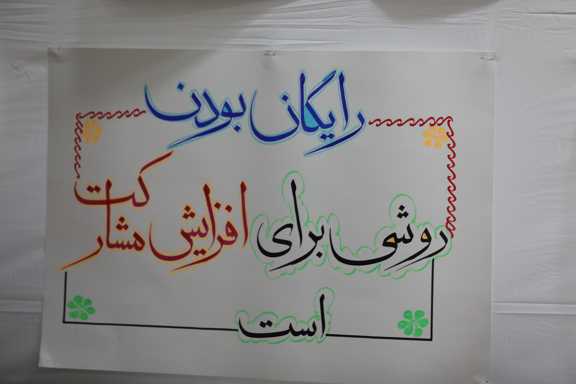 رایگان بودن
روشی برای افزایش مشارکت
است